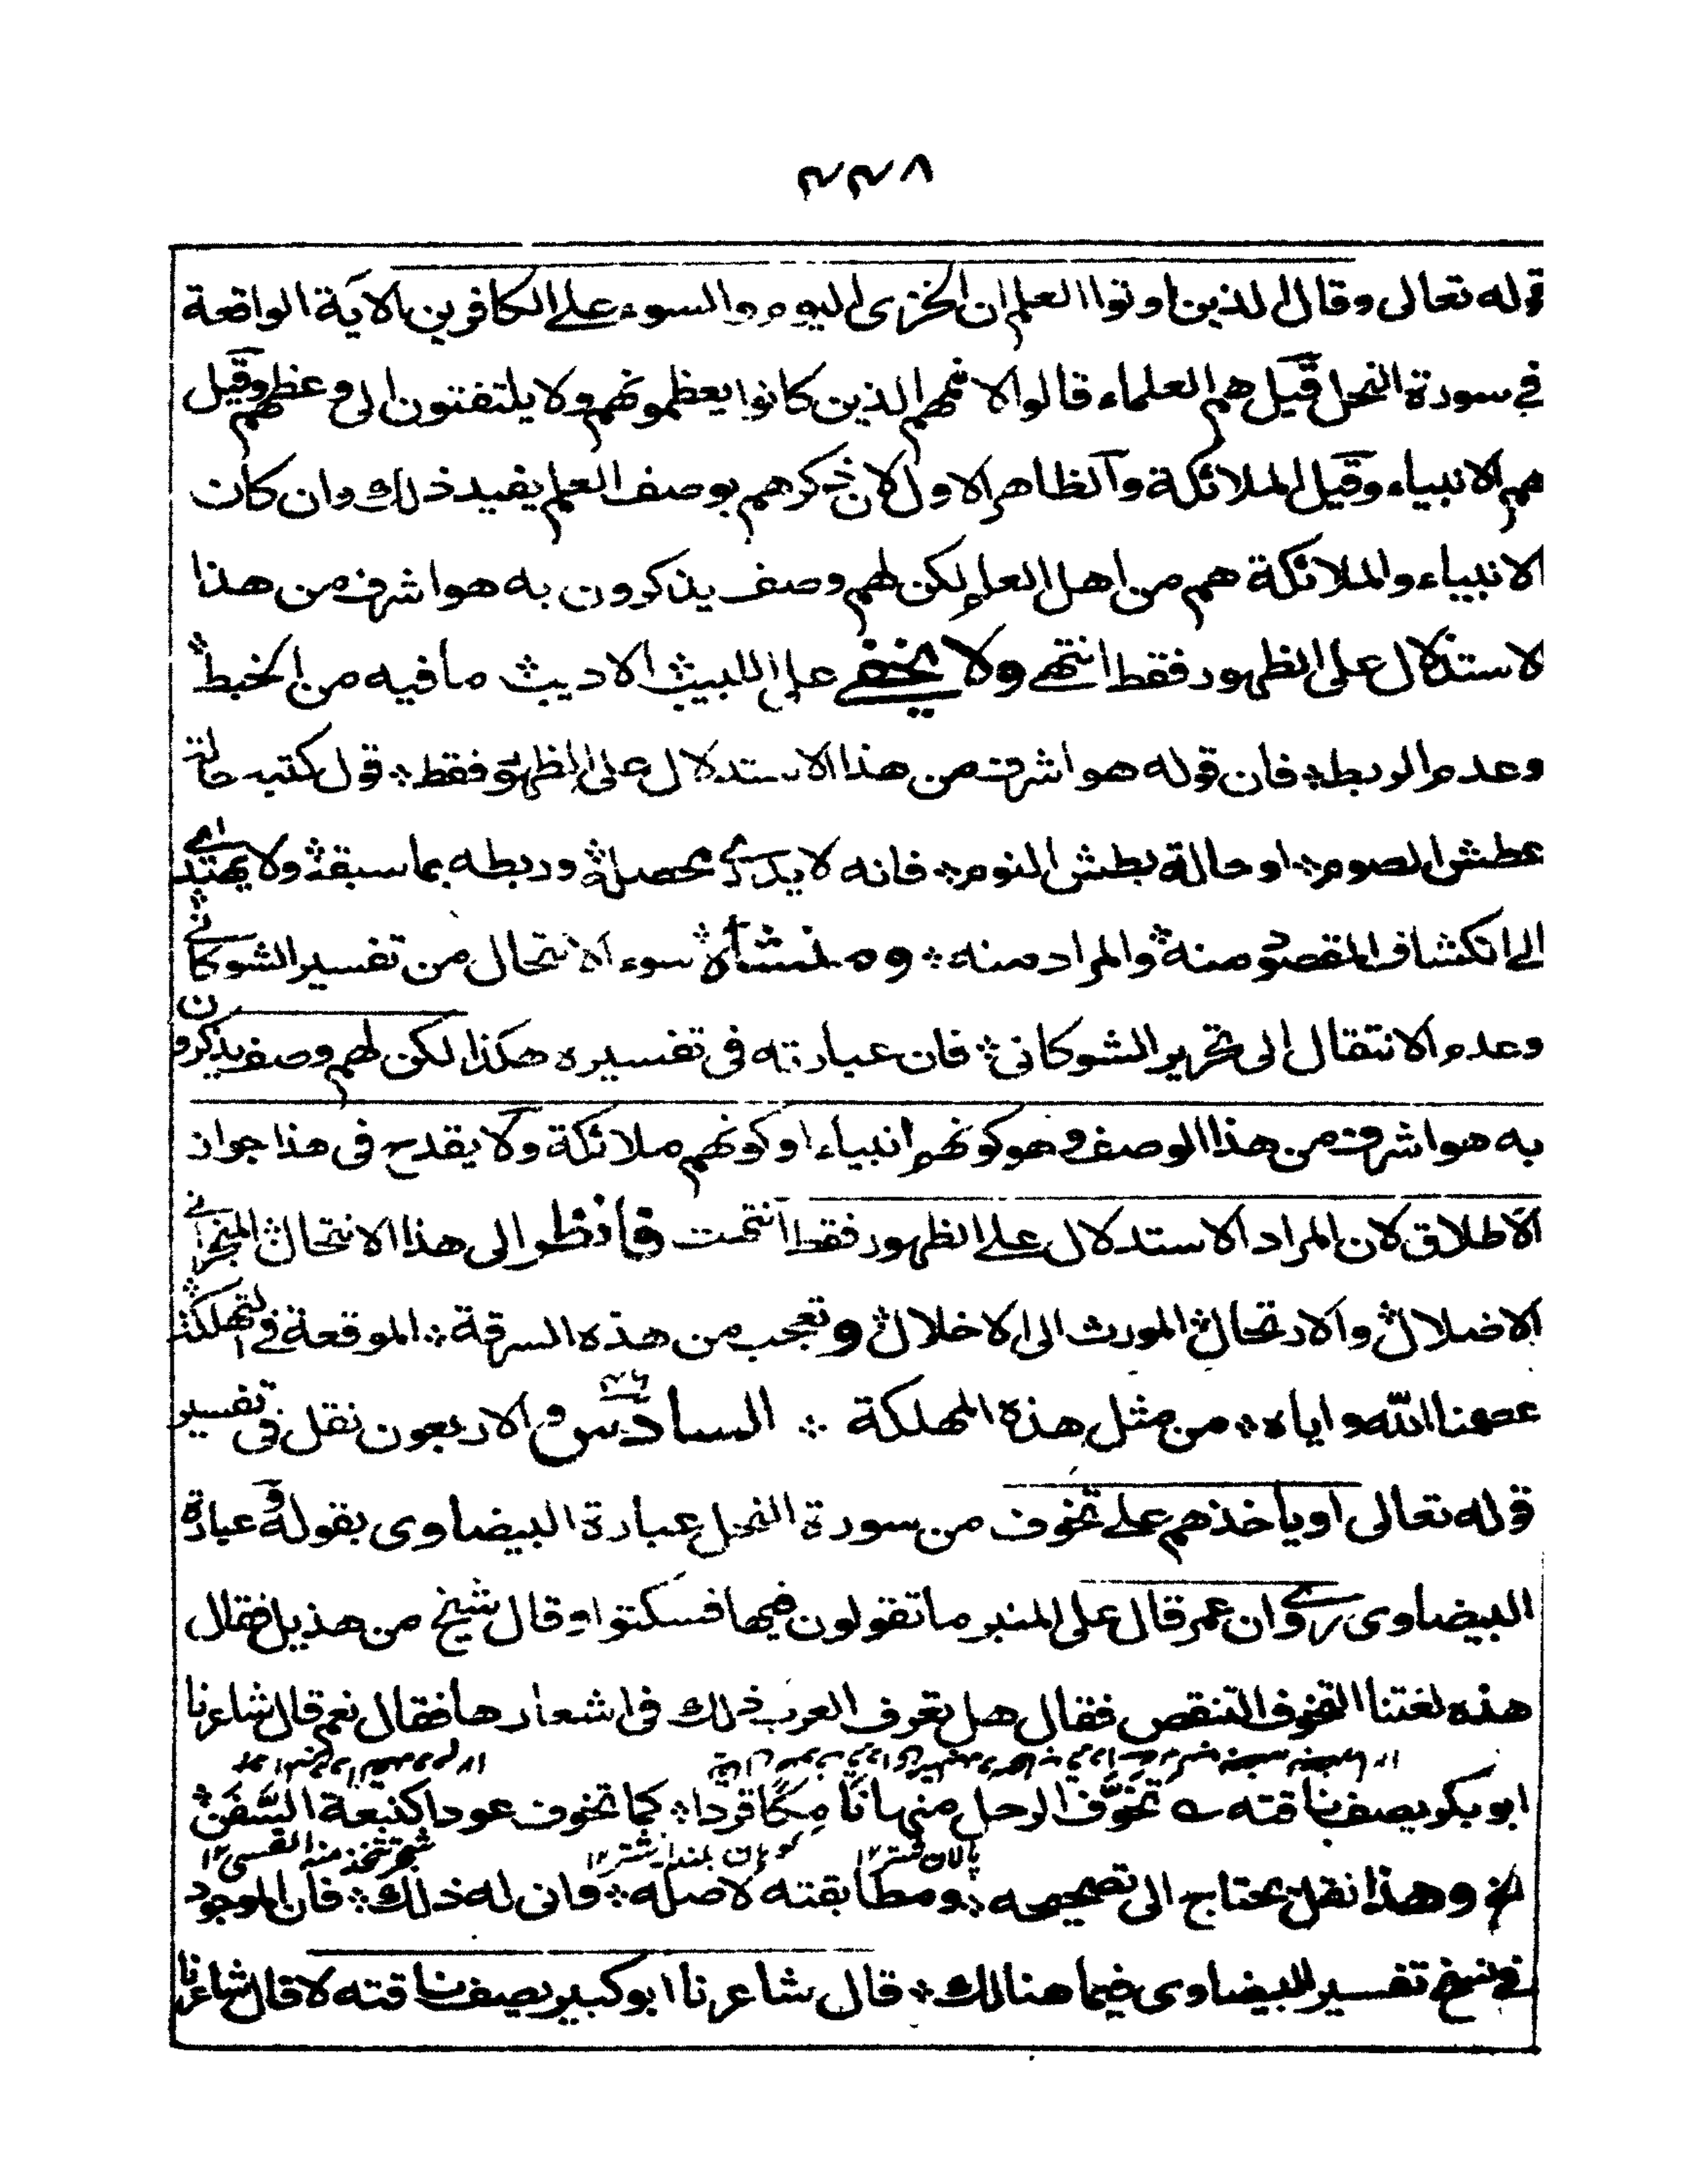 ٢٢٨
قوله تعالى وقال الذين اوتوا العلم ان الخزى اليوم والسوء على الكافرين الآية الواقعة
في سورة النحل قيل هم العلماء قالوا لاممهم الذين كانوا يعظمونهم ولا يلتفتون الى وعظهم وقيل
هم الانبياء وقيل الملائكة والظاهر الاول لان ذكرهم بوصف العلم يفيد ذلك وان كان
الانبياء والملائكة هم من اهل العلم لكن لهم وصف يذكرون به هو اشرف من هذا
لاستدلال على الظهور فقط انتهى ولا يخفى على اللبيب الاديب ما فيه من الخبط
وعدم الربط فان قوله هو اشرف من هذا الاستدلال على الظهور فقط قول كتبه حالة
عطش الصوم او حالة بطش النوم فانه لا يدرى محصله وربطه بما سبقه ولا يهتدى
الى انكشاف المقصود منه والمراد منه ومنشأه سوء الانتحال من تفسير الشوكانى
وعدم الانتقال الى تحرير الشوكانى فان عبارته فى تفسيره هكذا لكن لهم وصف يذكرون
به هو اشرف من هذا الوصف وهو كونهم انبياء او كونهم ملائكة ولا يقدح فى هذا جواز
الاطلاق لان المراد الاستدلال على الظهور فقط انتهت فانظر الى هذا الانتحال المنجر الى
الاضلال والارتحال المورث الى الاخلال وتعجب من هذه السرقة الموقعة فى التهلكة
عصمنا الله واياه من مثل هذه المهلكة السادس والاربعون نقل فى تفسير
قوله تعالى او ياخذهم على تخوف من سورة النحل عبارة البيضاوى بقوله وعبارة
البيضاوى روى ان عمر قال على المنبر ما تقولون فيها فسكتوا وقال شيخ من هذيل فقال
هذه لغتنا التخوف التنقص فقال هل تعرف العرب ذلك فى اشعارها فقال نعم قال شاعرنا
ابو بكر يصف ناقته تَخَوَّفَ الرحل منها تامكا قردا كما تخوف عود النبعة السَّفَن
پالان شتر ١٢ كوهان بلند شتر ١٢ شجر تتخذ منه القسى ١٢
الخ وهذا نقل يحتاج الى تصحيحه ومطابقته لاصله وانى له ذلك فان الموجود
فى نسخ تفسير البيضاوى فيما هنالك قال شاعرنا ابو كبير يصف ناقته لا قال شاعرنا